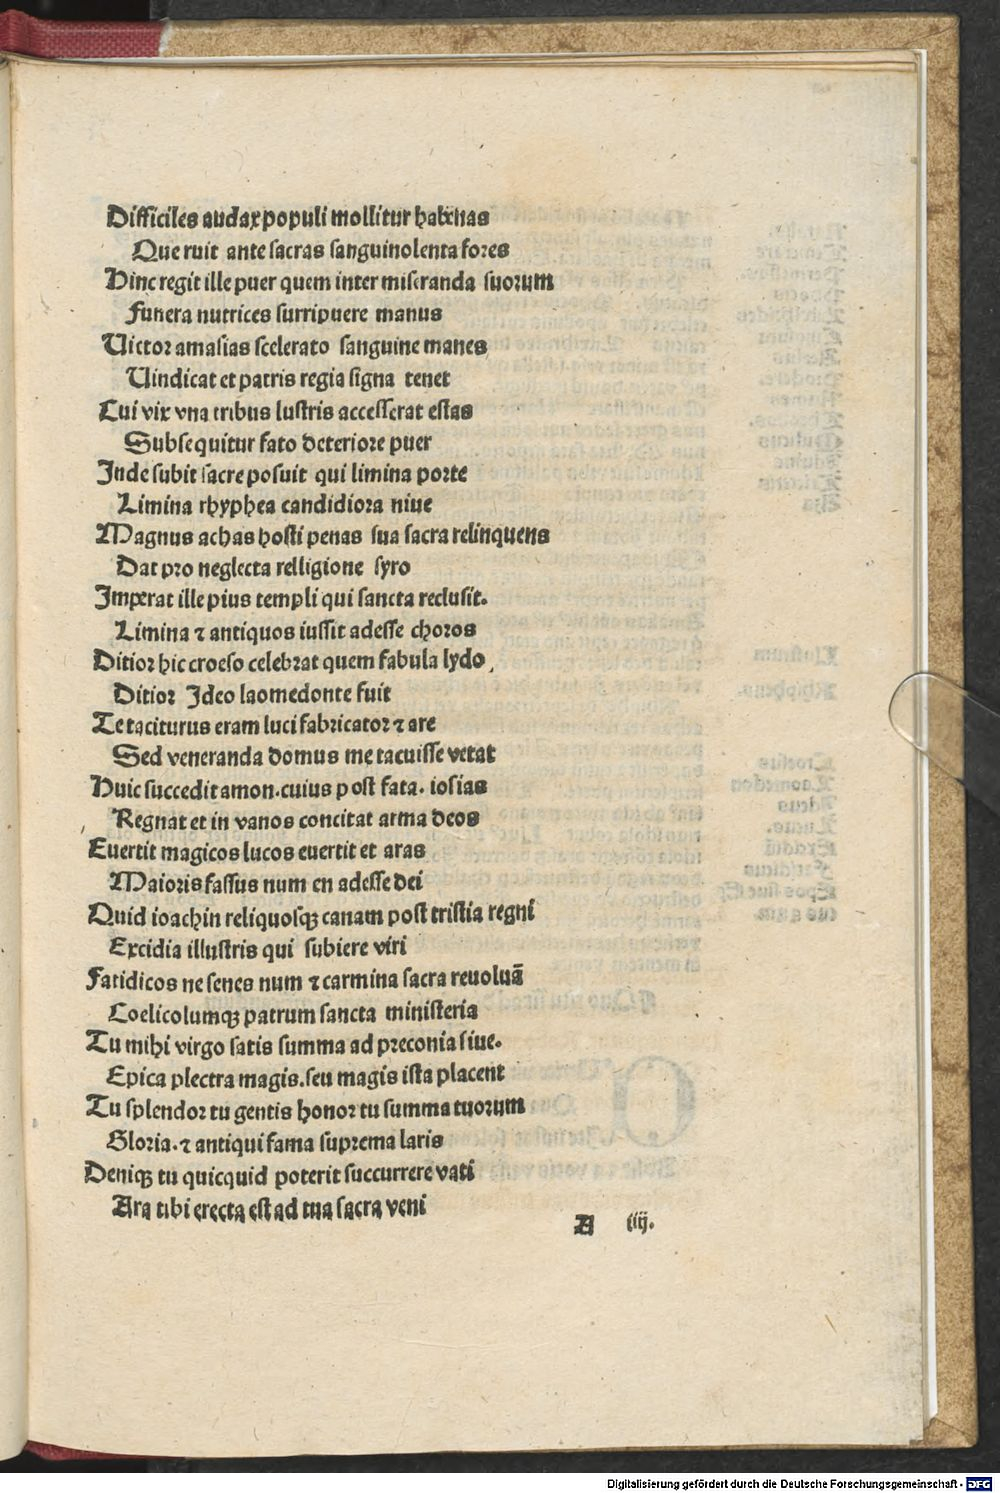 Difficiles audax populi mollitur habenas
Que ruit ante sacras sanguinolenta fores
Hinc regit ille puer quem inter miseranda suorum
Funera nutrices surripuere manus
Victor amasias scelerato sanguine manes
Vindicat et patris regia signa tenet
Cui vix vna tribus lustris accesserat estas
Subsequitur fato deteriore puer
Inde subit sacre posuit qui limina porte
Limina rhyphea candidiora niue
Magnus achas hosti penas sua sacra relinquens
Dat pro neglecta relligione syro
Imperat ille pius templi qui sancta reclusit.
Limina ⁊ antiquos iussit adesse choros
Ditior hic croeso celebrat quem fabula lydo
Ditior Ideo laomedonte fuit
Te taciturus eram luci fabricator ⁊ are
Sed veneranda domus me tacuisse vetat
Huic succedit amon. cuius post fata. iosias
Regnat et in vanos concitat arma deos
Euertit magicos lucos euertit et aras
Maioris fassus num en adesse dei
Quid ioachin reliquosqꝫ canam post tristia regni
Excidia illustris qui subiere viri
Fatidicos ne senes num ⁊ carmina sacra reuoluā
Coelicolumqꝫ patrum sancta ministeria
Tu mihi virgo satis summa ad preconia siue.
Epica plectra magis. seu magis ista placent
Tu splendor tu gentis honor tu summa tuorum
Gloria. ⁊ antiqui fama suprema laris
Deniqꝫ tu quicquid poterit succurrere vati
Ara tibi erecta est ad tua sacra veni
A iij.
Digitalisierung gefördert durch die Deutsche Forschungsgemeinschaft - DFG